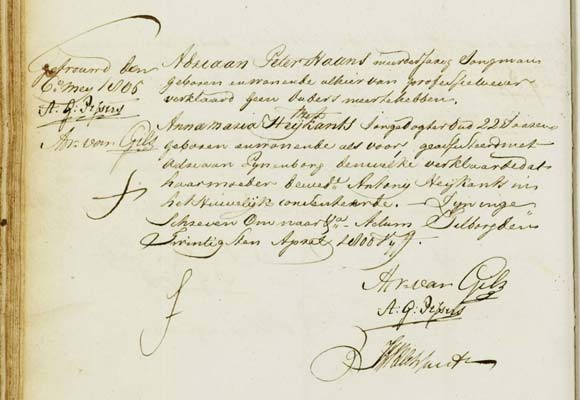 getrouwd den
6e mey 1806
A: G: Pessers
Ar. van Gils
Adriaan Peter Haans meerderjarig Jongman
geboren en wonende alhier van professie wever
verklaard geen Ouders meer te hebben.
met
Annamaria Heijkants Jongedogter oud 22 Jaaren
geboren en wonende als voor geassisteerd met
Adriaan Pynenborg dewelke verklaarde dat
haar moeder de wed.e Antony Heijkants in
het Huwelijk consenteerde. zyn inge
schreven om naar Actum Tilborg den
twintigsten April 1800
Ar. van Gils
A: G: Pessers